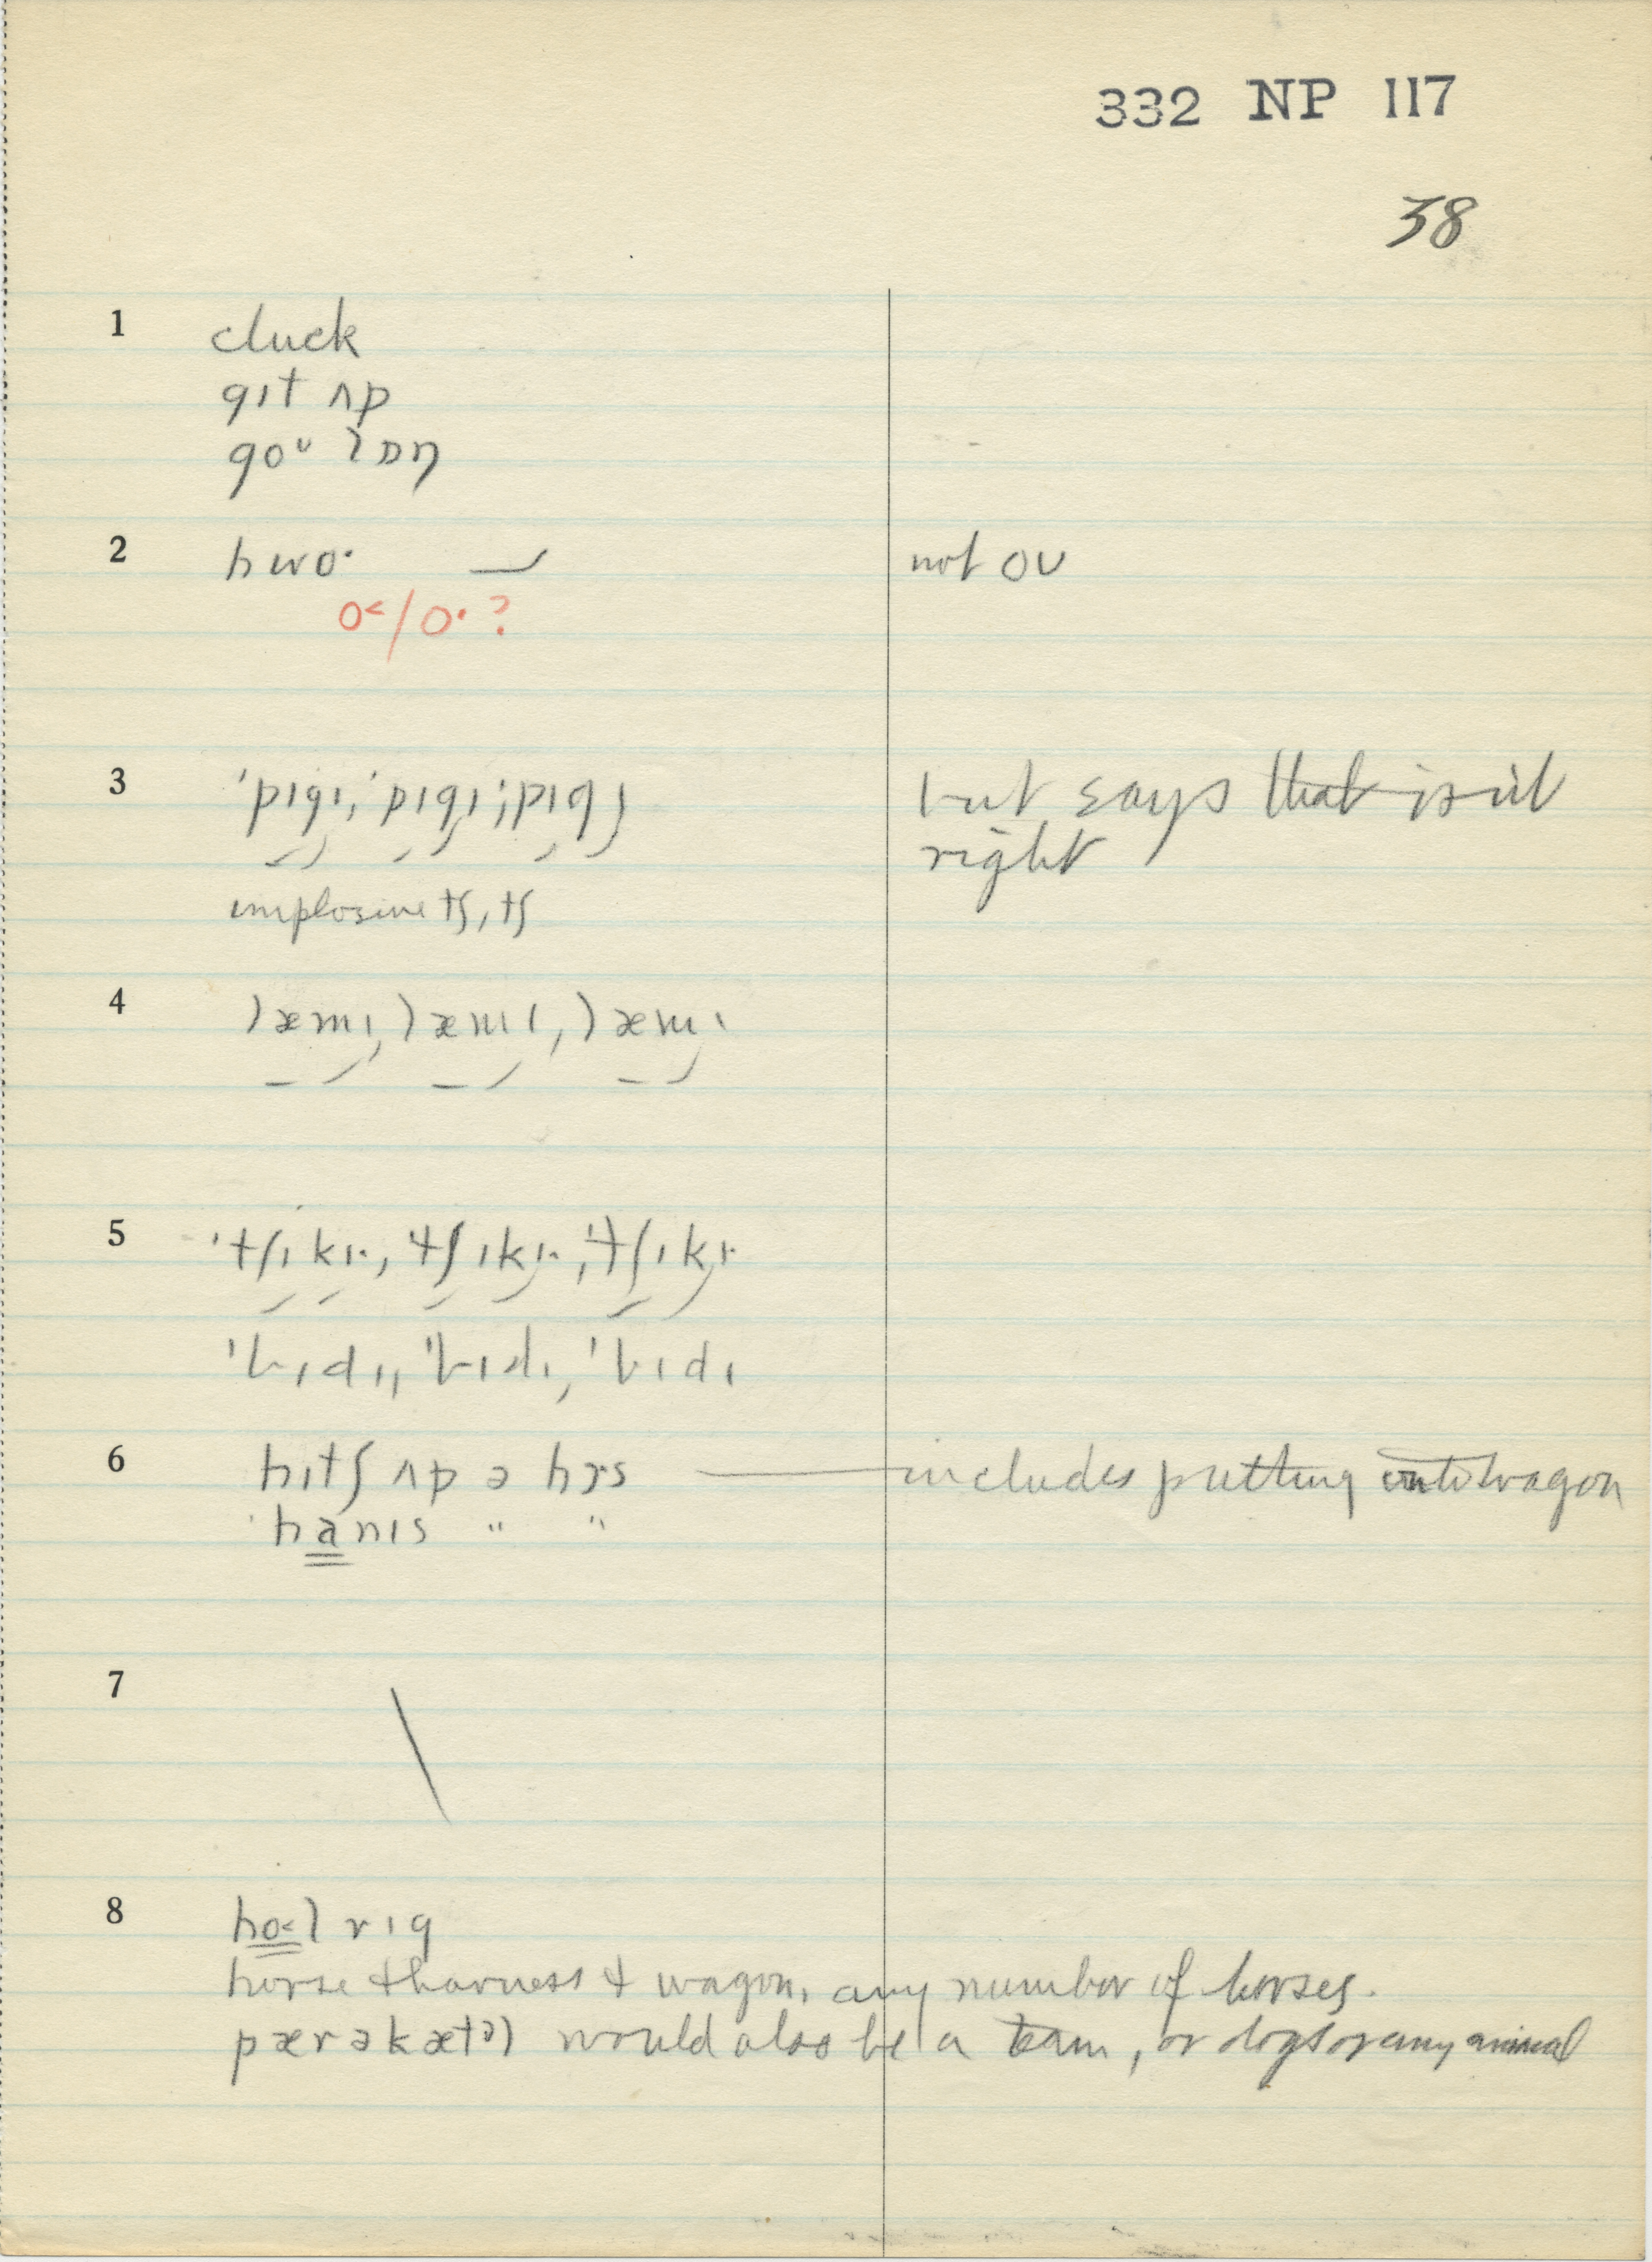 332 NP 117
38
1 cluck
gɪt ʌp
goᵁ lɒŋ
2 hwo· not oU
o˂/o·?
3 'pɪgɪ, 'pɪgɪ, 'pɪgɪ but says that isn't
right
implosive tʃ, tʃ
4 læmɪ, læmɪ, læmɪ
5 'tʃɪkɪ·, 'tʃɪkɪ·, 'tʃɪkɪ·
6 hɪtʃ ʌp ə hɔrs — includes putting onto wagon
hanɪs " "
7
8 ho˂l rɪg
horse & harness & wagon, any number of horses.
pær ə kætəl would also be a team, or dogs or any animal